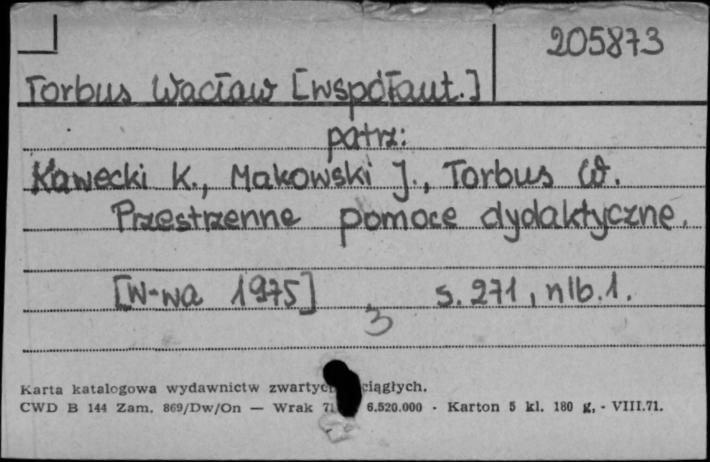 205873
Torbus Wacław [współaut.]
patrz:
Kawecki K., Makowski J., Torbus W.
Przestrzenne pomoce dydaktyczne.
[W-wa 1975] s. 271, nlb. 1.
3
Karta katalogowa wydawnictw ciągłych.
CWD B 144 Zam. 869/Dw/On — Wrak 6.520.000 - Karton 5 kl. 180 g, - VIII.71.